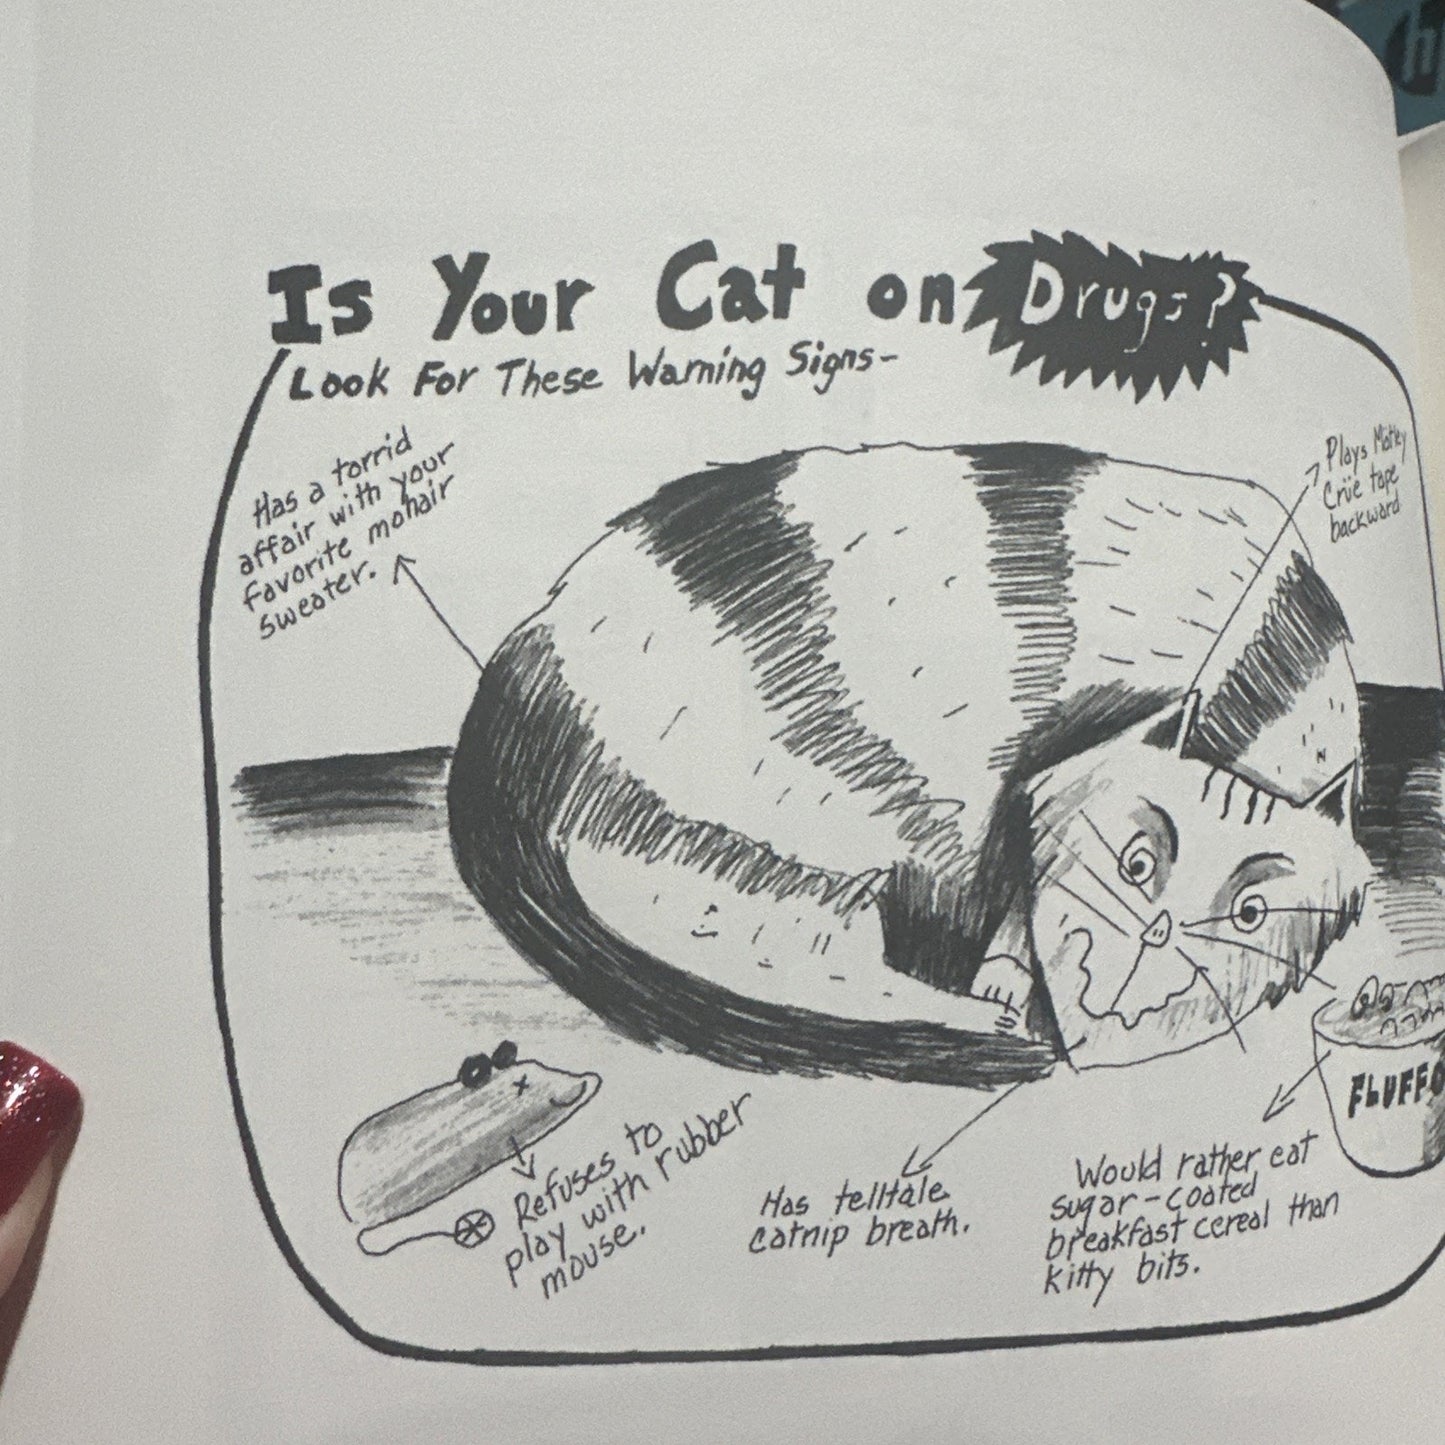 Is Your Cat on Drugs?
Look For These Warning Signs-
Has a torrid
affair with your
favorite mohair
sweater.
Plays Mötley
Crüe tape
backward
Refuses to
play with rubber
mouse.
Has telltale
catnip breath.
Would rather eat
sugar-coated
breakfast cereal than
kitty bits.
FLUFFO
hp